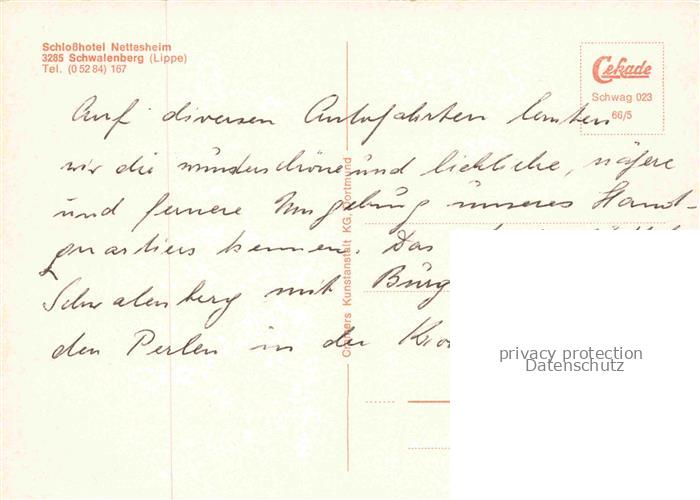 Schloßhotel Nettesheim
3285 Schwalenberg (Lippe)
Tel. (0 52 84) 167
Cekade
Schwag 023
66/5
Auf diversen Autofahrten lernten
wir die wunderschöne und liebliche, nähere
und fernere Umgebung unseres Stand-
quartiers kennen. Das
Schwalenberg mit Burg
den Perlen in der
Cramers Kunstanstalt KG, Dortmund
privacy protection
Datenschutz